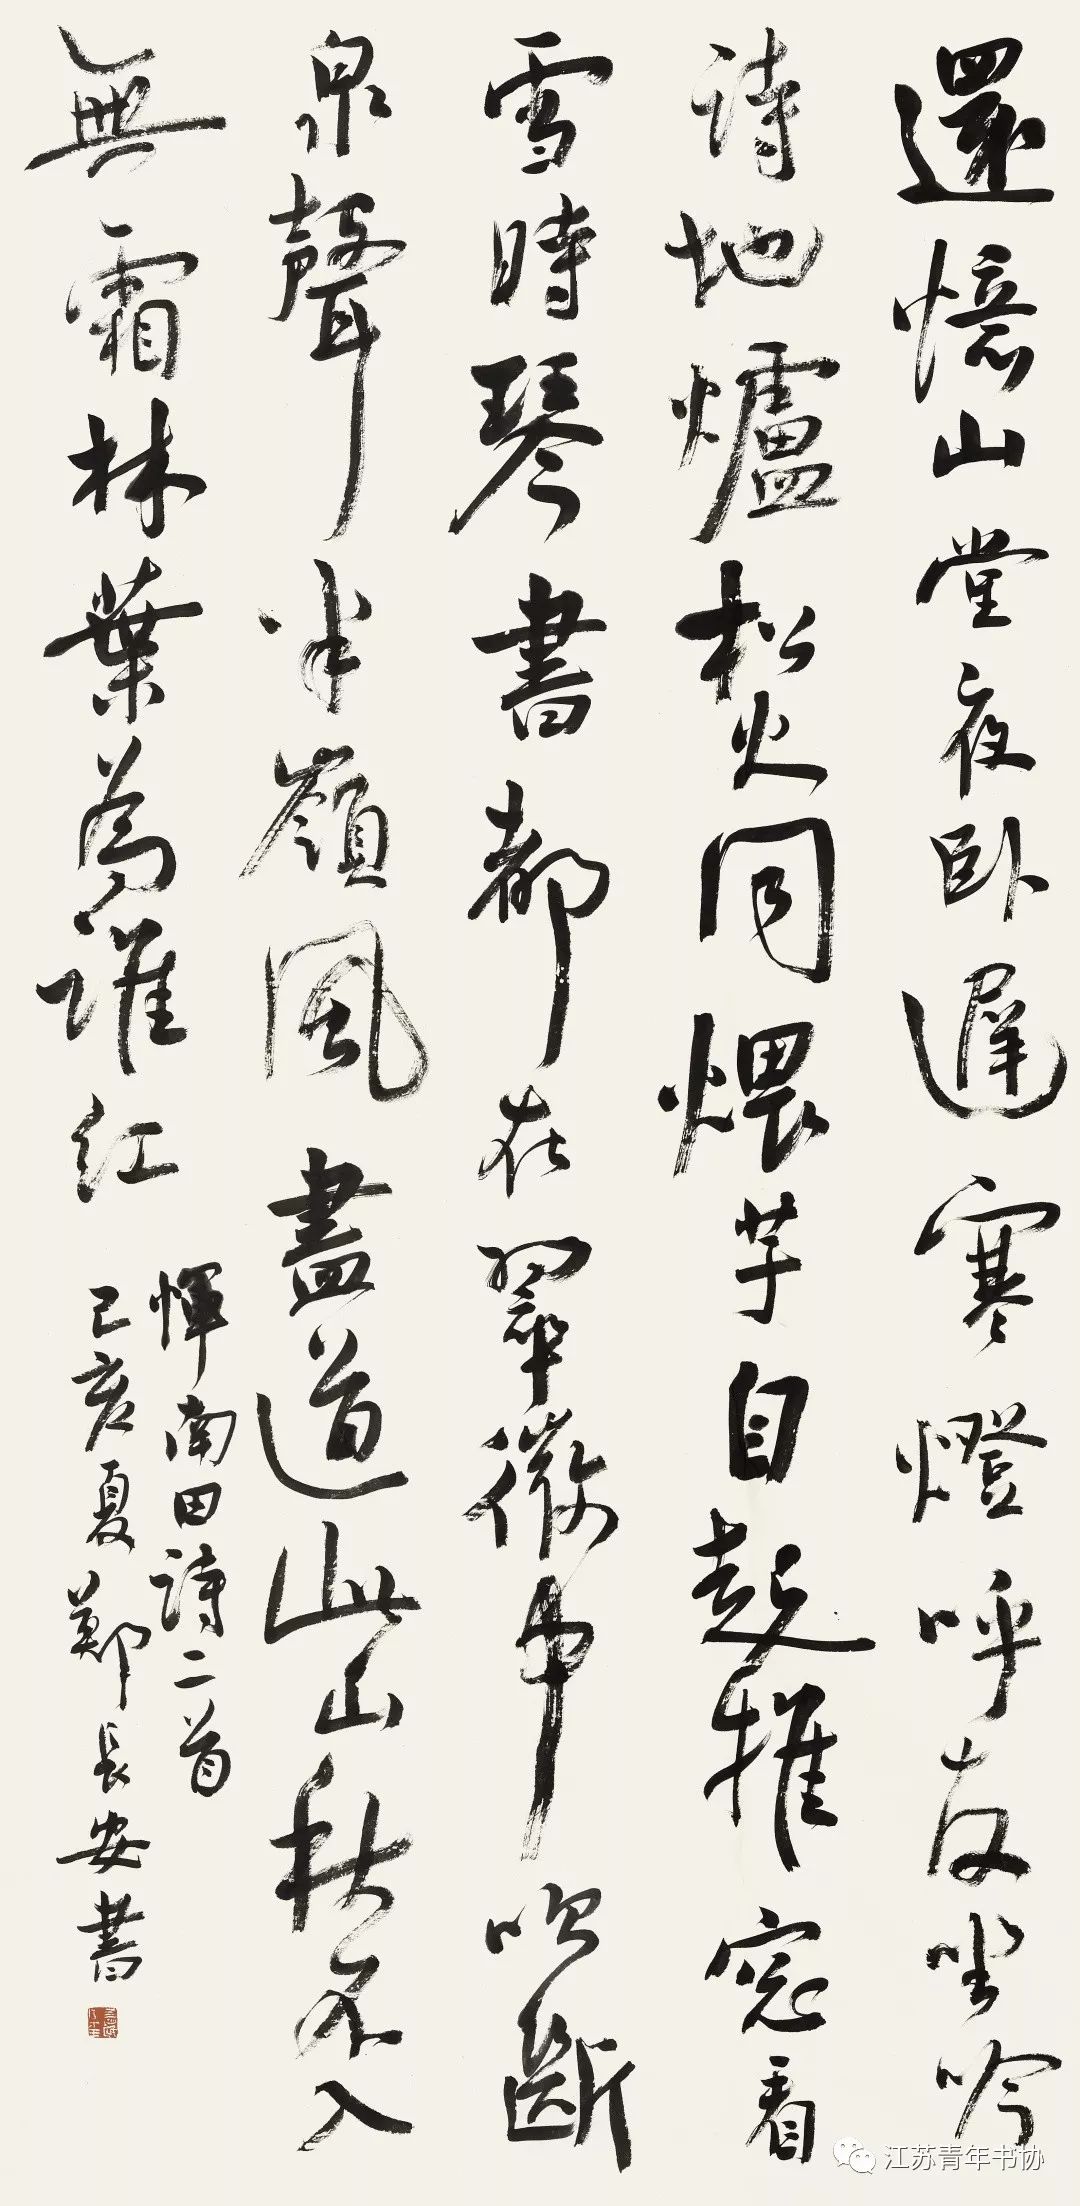 還憶山堂夜卧遲寒燈呼友坐吟
詩地爐松火同煨芋自起推窓看
雪時琴書都在翠微中吹斷
泉聲半嶺風盡道此山秋不入
無霜林葉為誰紅
惲南田詩二首
己亥夏鄭長安書
江苏青年书协